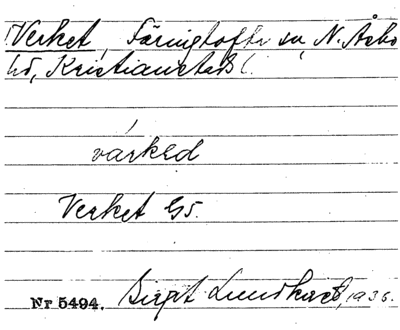 Verket, Färingtofta sn, N. Åsbo
hd, Kristianstads l.
várkəd
Verket G5.
Nr 5494. Birgit Lundkvist, 1936.